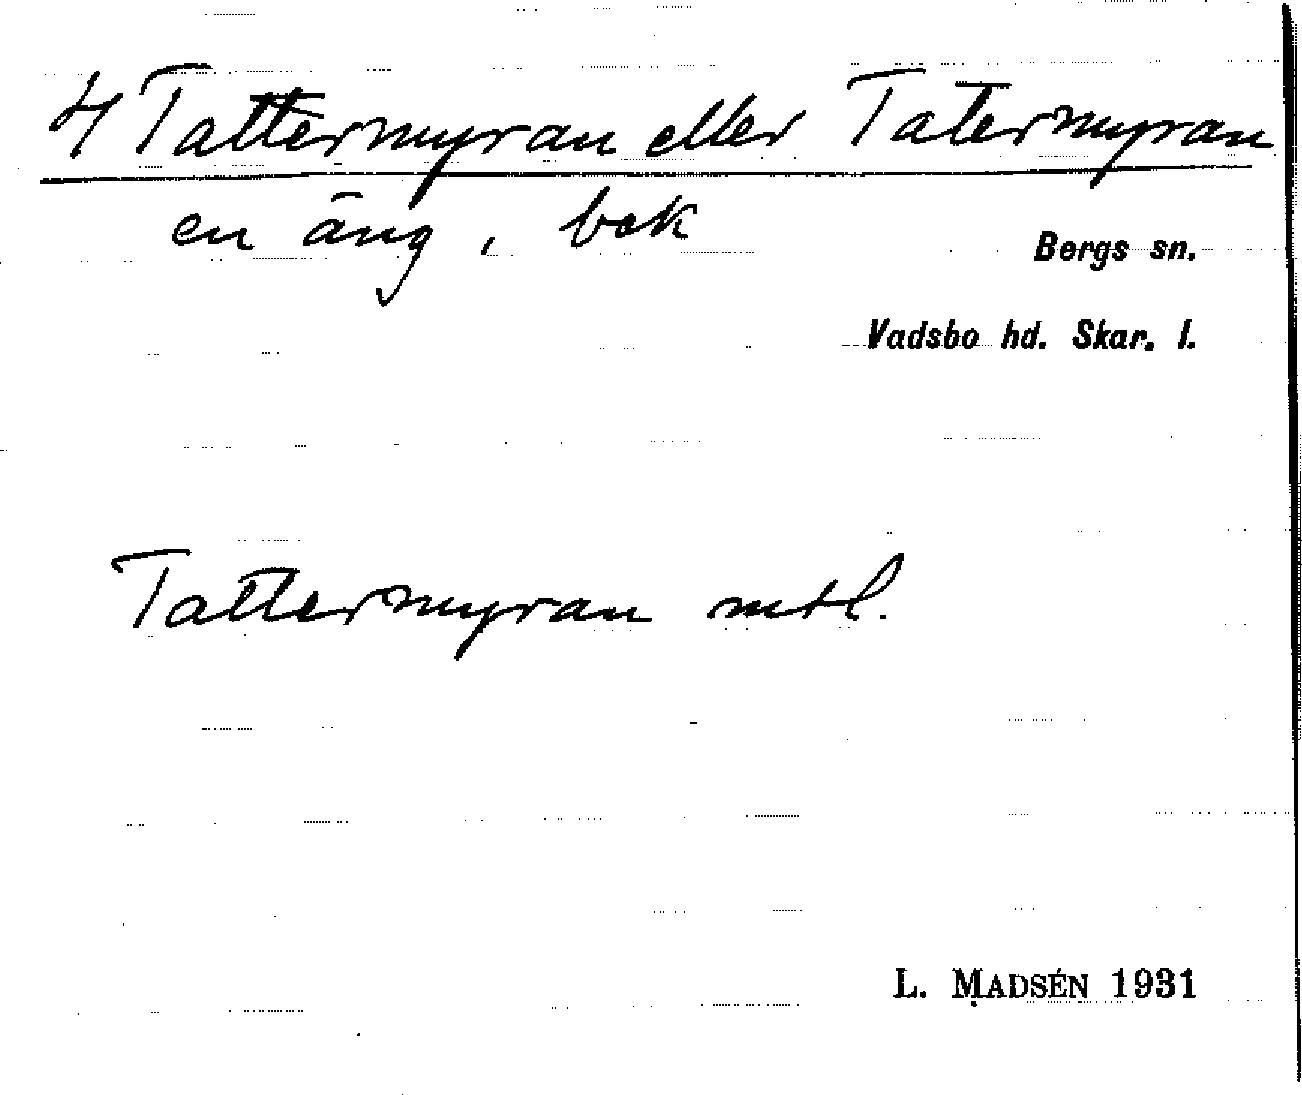 4 Tattermyran eller Tatermyran
en äng, bek
Bergs sn.
Vadsbo hd. Skar. l.
Tattermyran mtl.
L. MADSÉN 1931